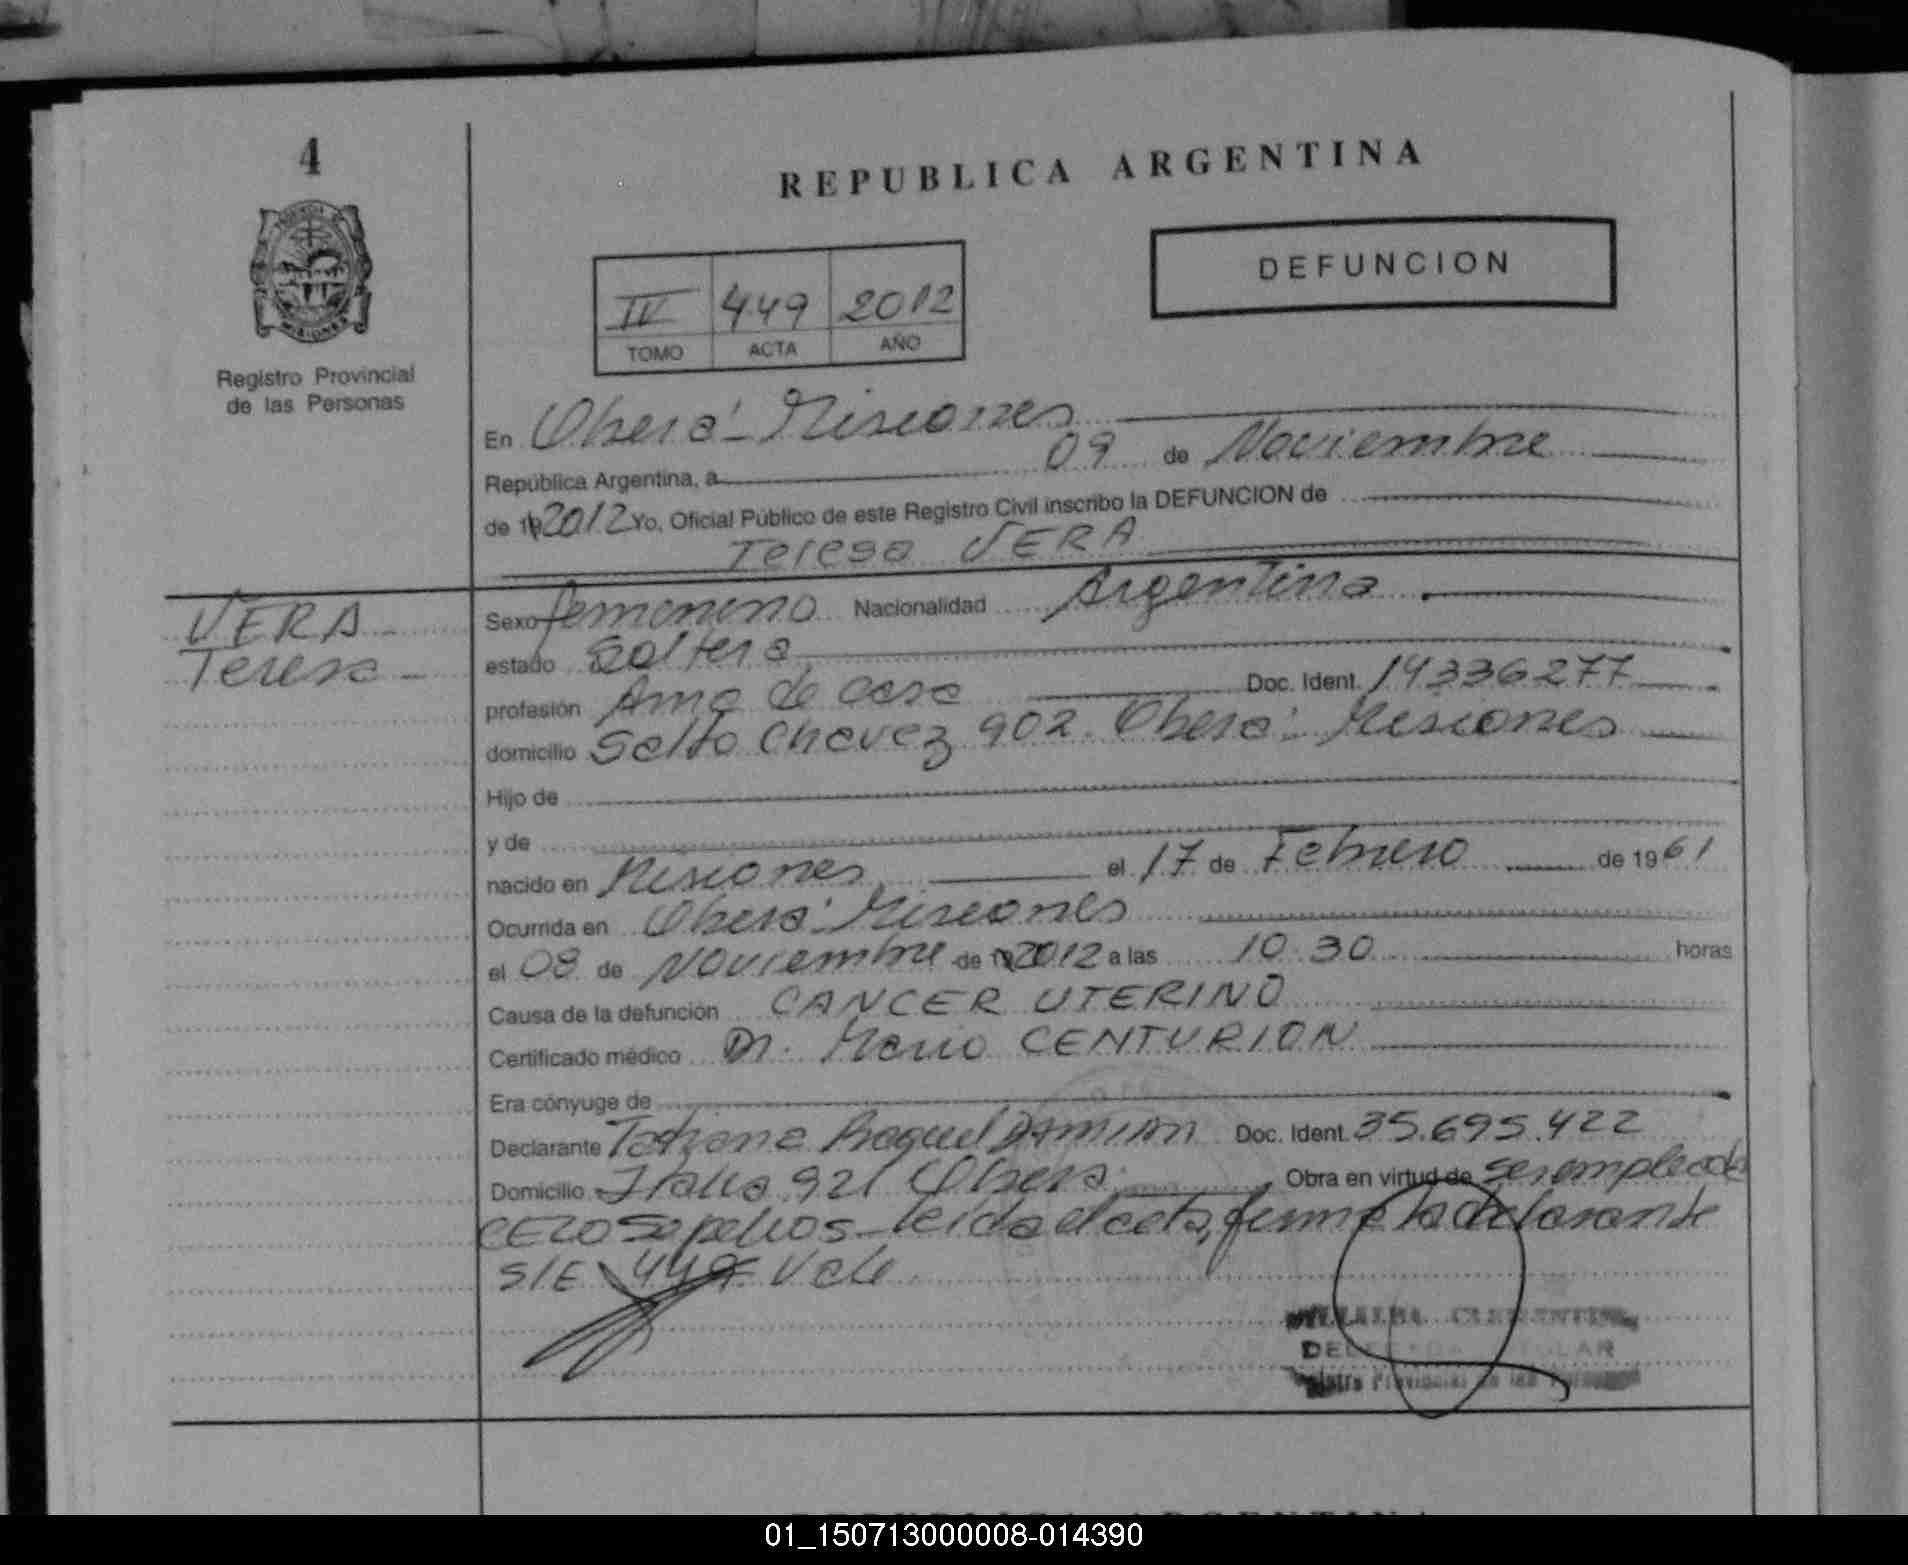 4
REPUBLICA ARGENTINA
DEFUNCION
IV 449 2012
TOMO ACTA AÑO
Registro Provincial
de las Personas
En Oberá - Misiones
República Argentina, a 09 de Noviembre
de 19 2012 Yo, Oficial Público de este Registro Civil inscribo la DEFUNCION de
Teresa VERA
VERA
Teresa
Sexo femenino Nacionalidad Argentina
estado Soltera
profesión Ama de casa Doc. Ident. 14336277
domicilio Salto Chavez 902. Oberá - Misiones
Hijo de
y de
nacido en Misiones el 17 de Febrero de 1961
Ocurrida en Oberá - Misiones
el 08 de Noviembre de 19 2012 a las 10.30 horas
Causa de la defunción CANCER UTERINO
Certificado médico Dr. Mario CENTURION
Era cónyuge de
Declarante Tatiana Raquel DAMIAN Doc. Ident. 35.695.422
Domicilio Italia 921 Oberá Obra en virtud de ser empleada
sepelios - leída el acta, firma la declarante
S/E 449 Vale
Registro Provincial de las Personas
01_150713000008-014390